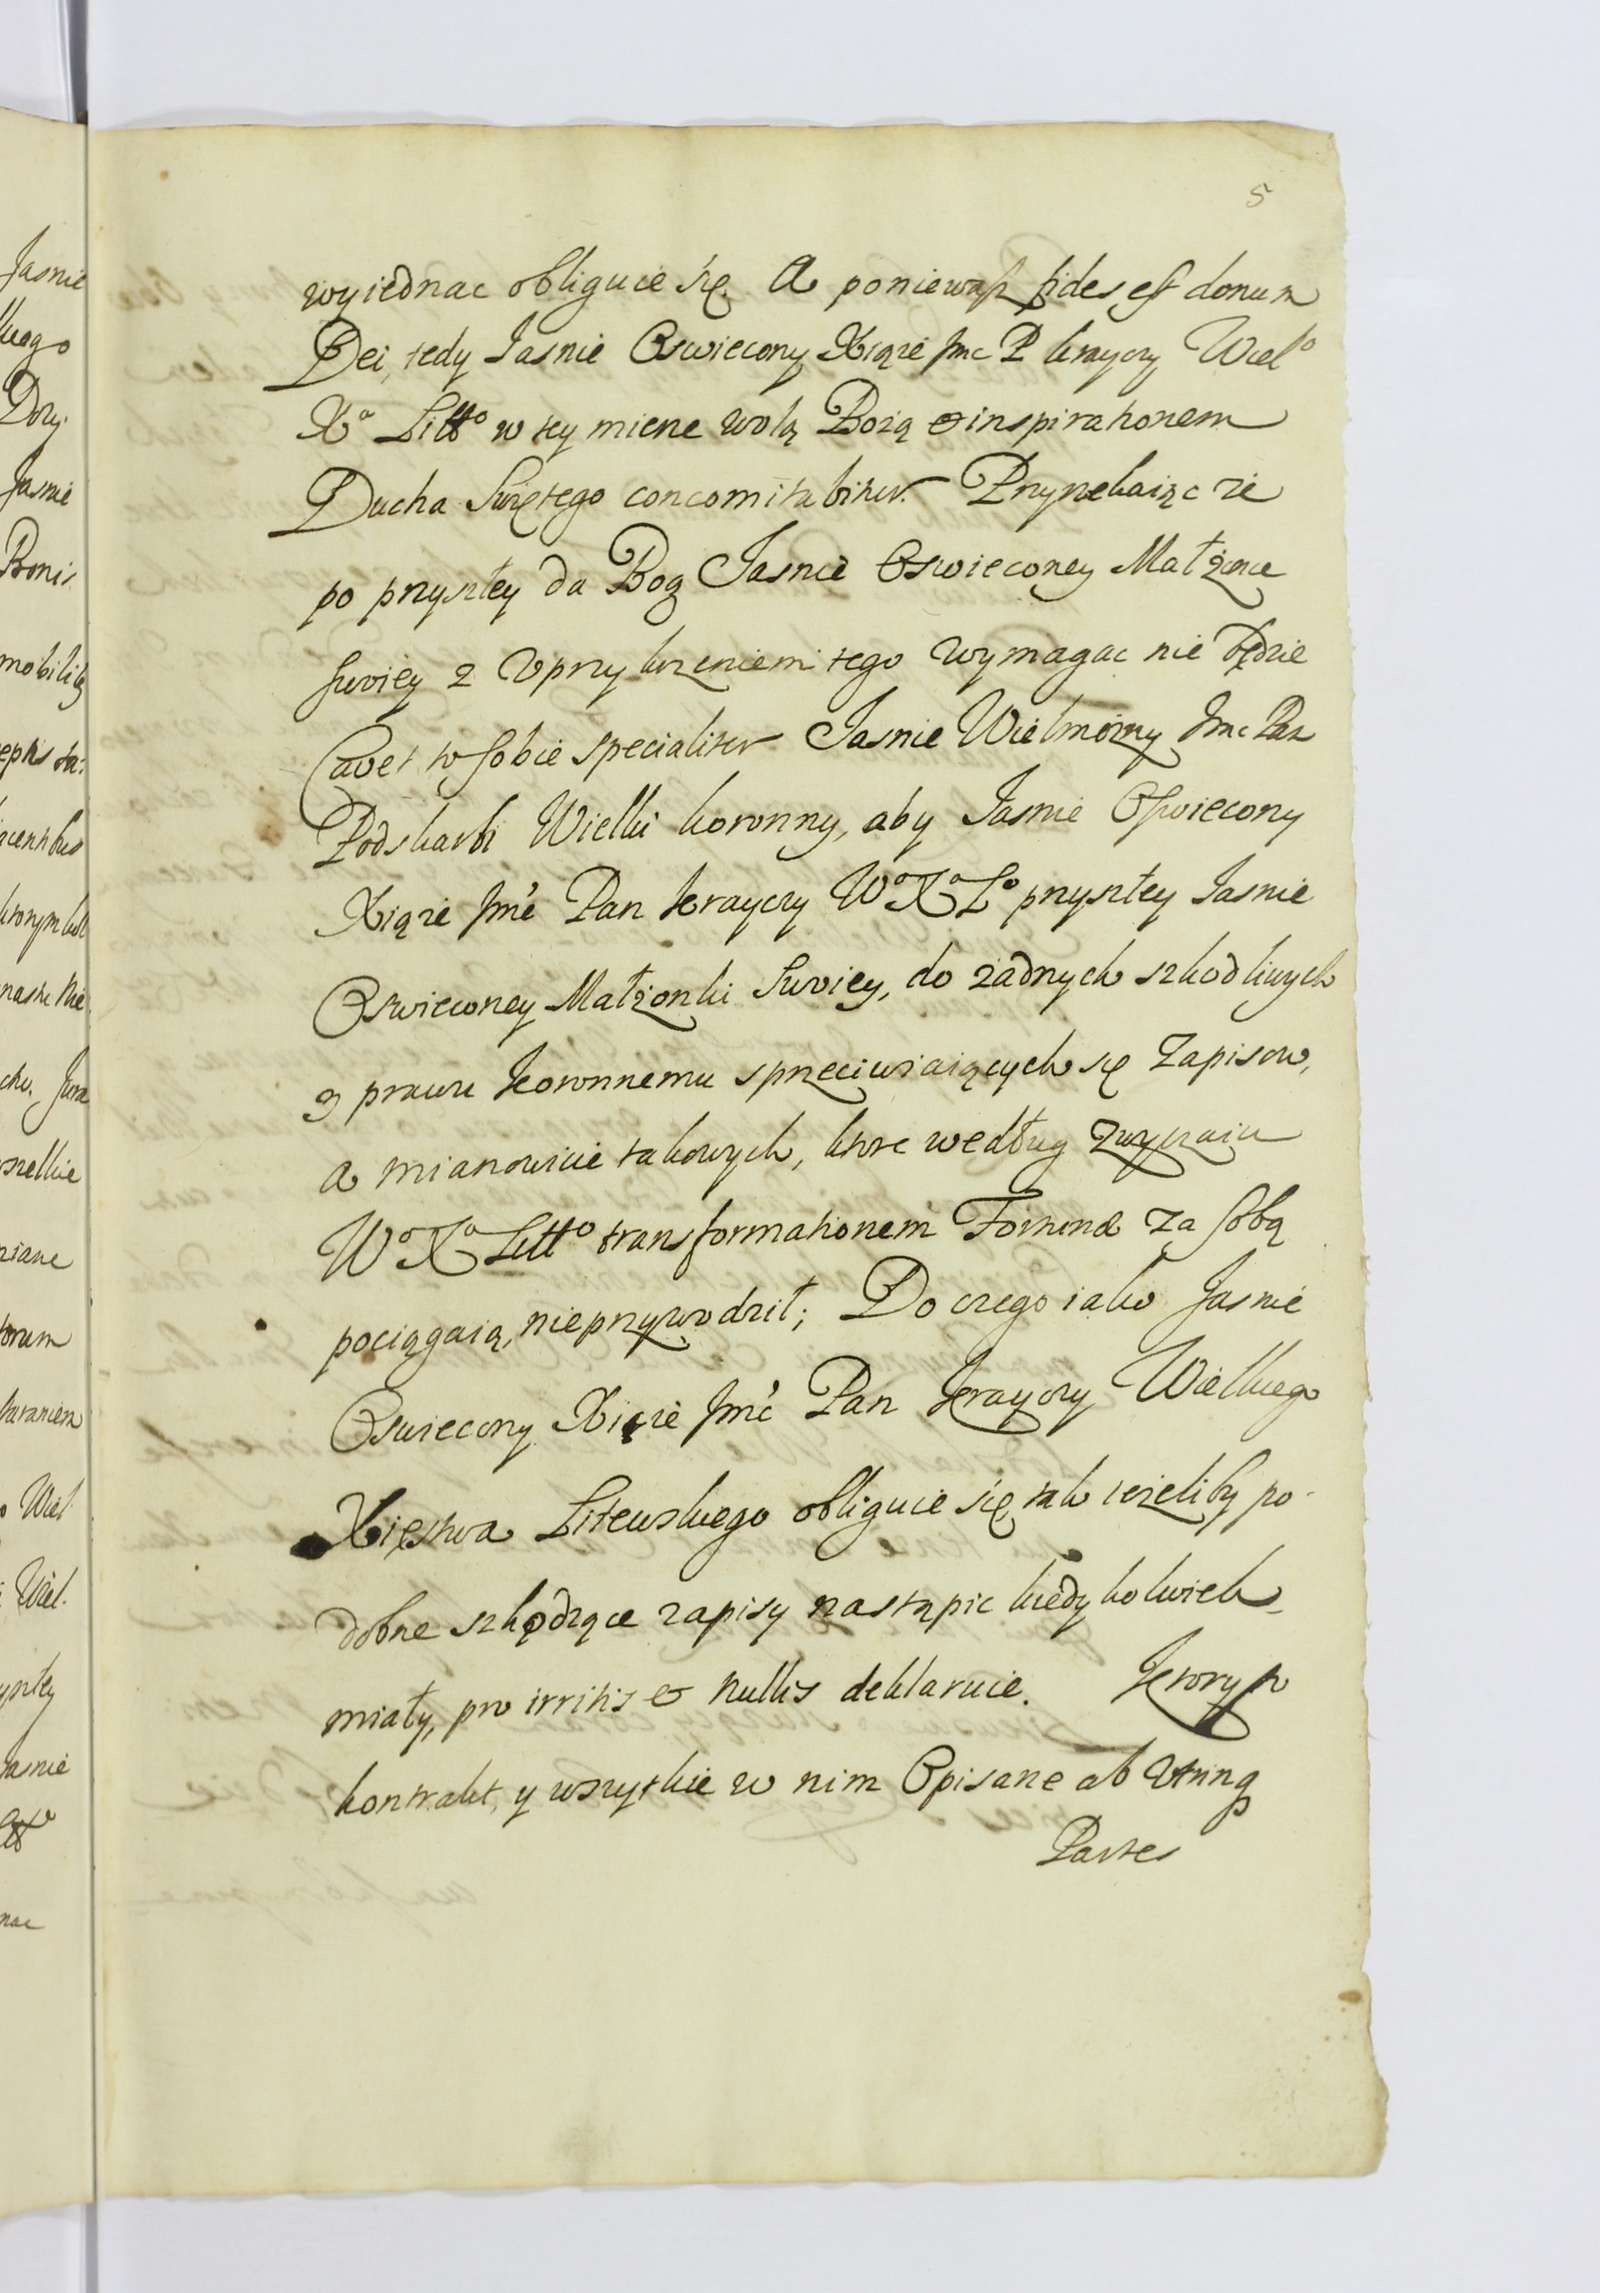 5
wyiednac obliguie się. A poniewasz fides est donum
Dei, tedy Jasnie Oswiecony Xiąze Jmc P krayczy Wiel°
X° Litt° w tey mierze wolą Bozą et inspirationem
Ducha Swiętego concomitabitur. Przyrzekaiąc ze
po przyszłey da Bog Jasnie Oswieconey Małżonce
swoiey z uprzykrzeniem tego wymagac nie będzie
Cavet to sobie specialiter Jasnie Wielmozny Jmc Pan
Podskarbi Wielki koronny, aby Jasnie Oswiecony
Xiąze Jmć Pan Krayczy W° X° L° przyszłey Jasnie
Oswieconey Małżonki swoiey, do żadnych szkodliwych
y prawu Koronnemu sprzeciwiaiących się Zapisow,
a mianowicie takowych, ktore według zwyczaiu
W° X° Litt° transformationem Fortunæ za sobą
pociągaią, nieprzywodził; Do czego iako Jasnie
Oswiecony Xiąże Jmć Pan Krayczy Wielkiego
Xięstwa Litewskiego obliguie się, tak ieżeliby po-
dobne szkodzące zapisy nastąpic kiedykolwiek
miały, pro irritis et nullis deklaruie. Ktory to
kontrakt, y wszytkie w nim Opisane ab utrinq
Partes
Jasnie
Dozy.
Jasnie
Bonis